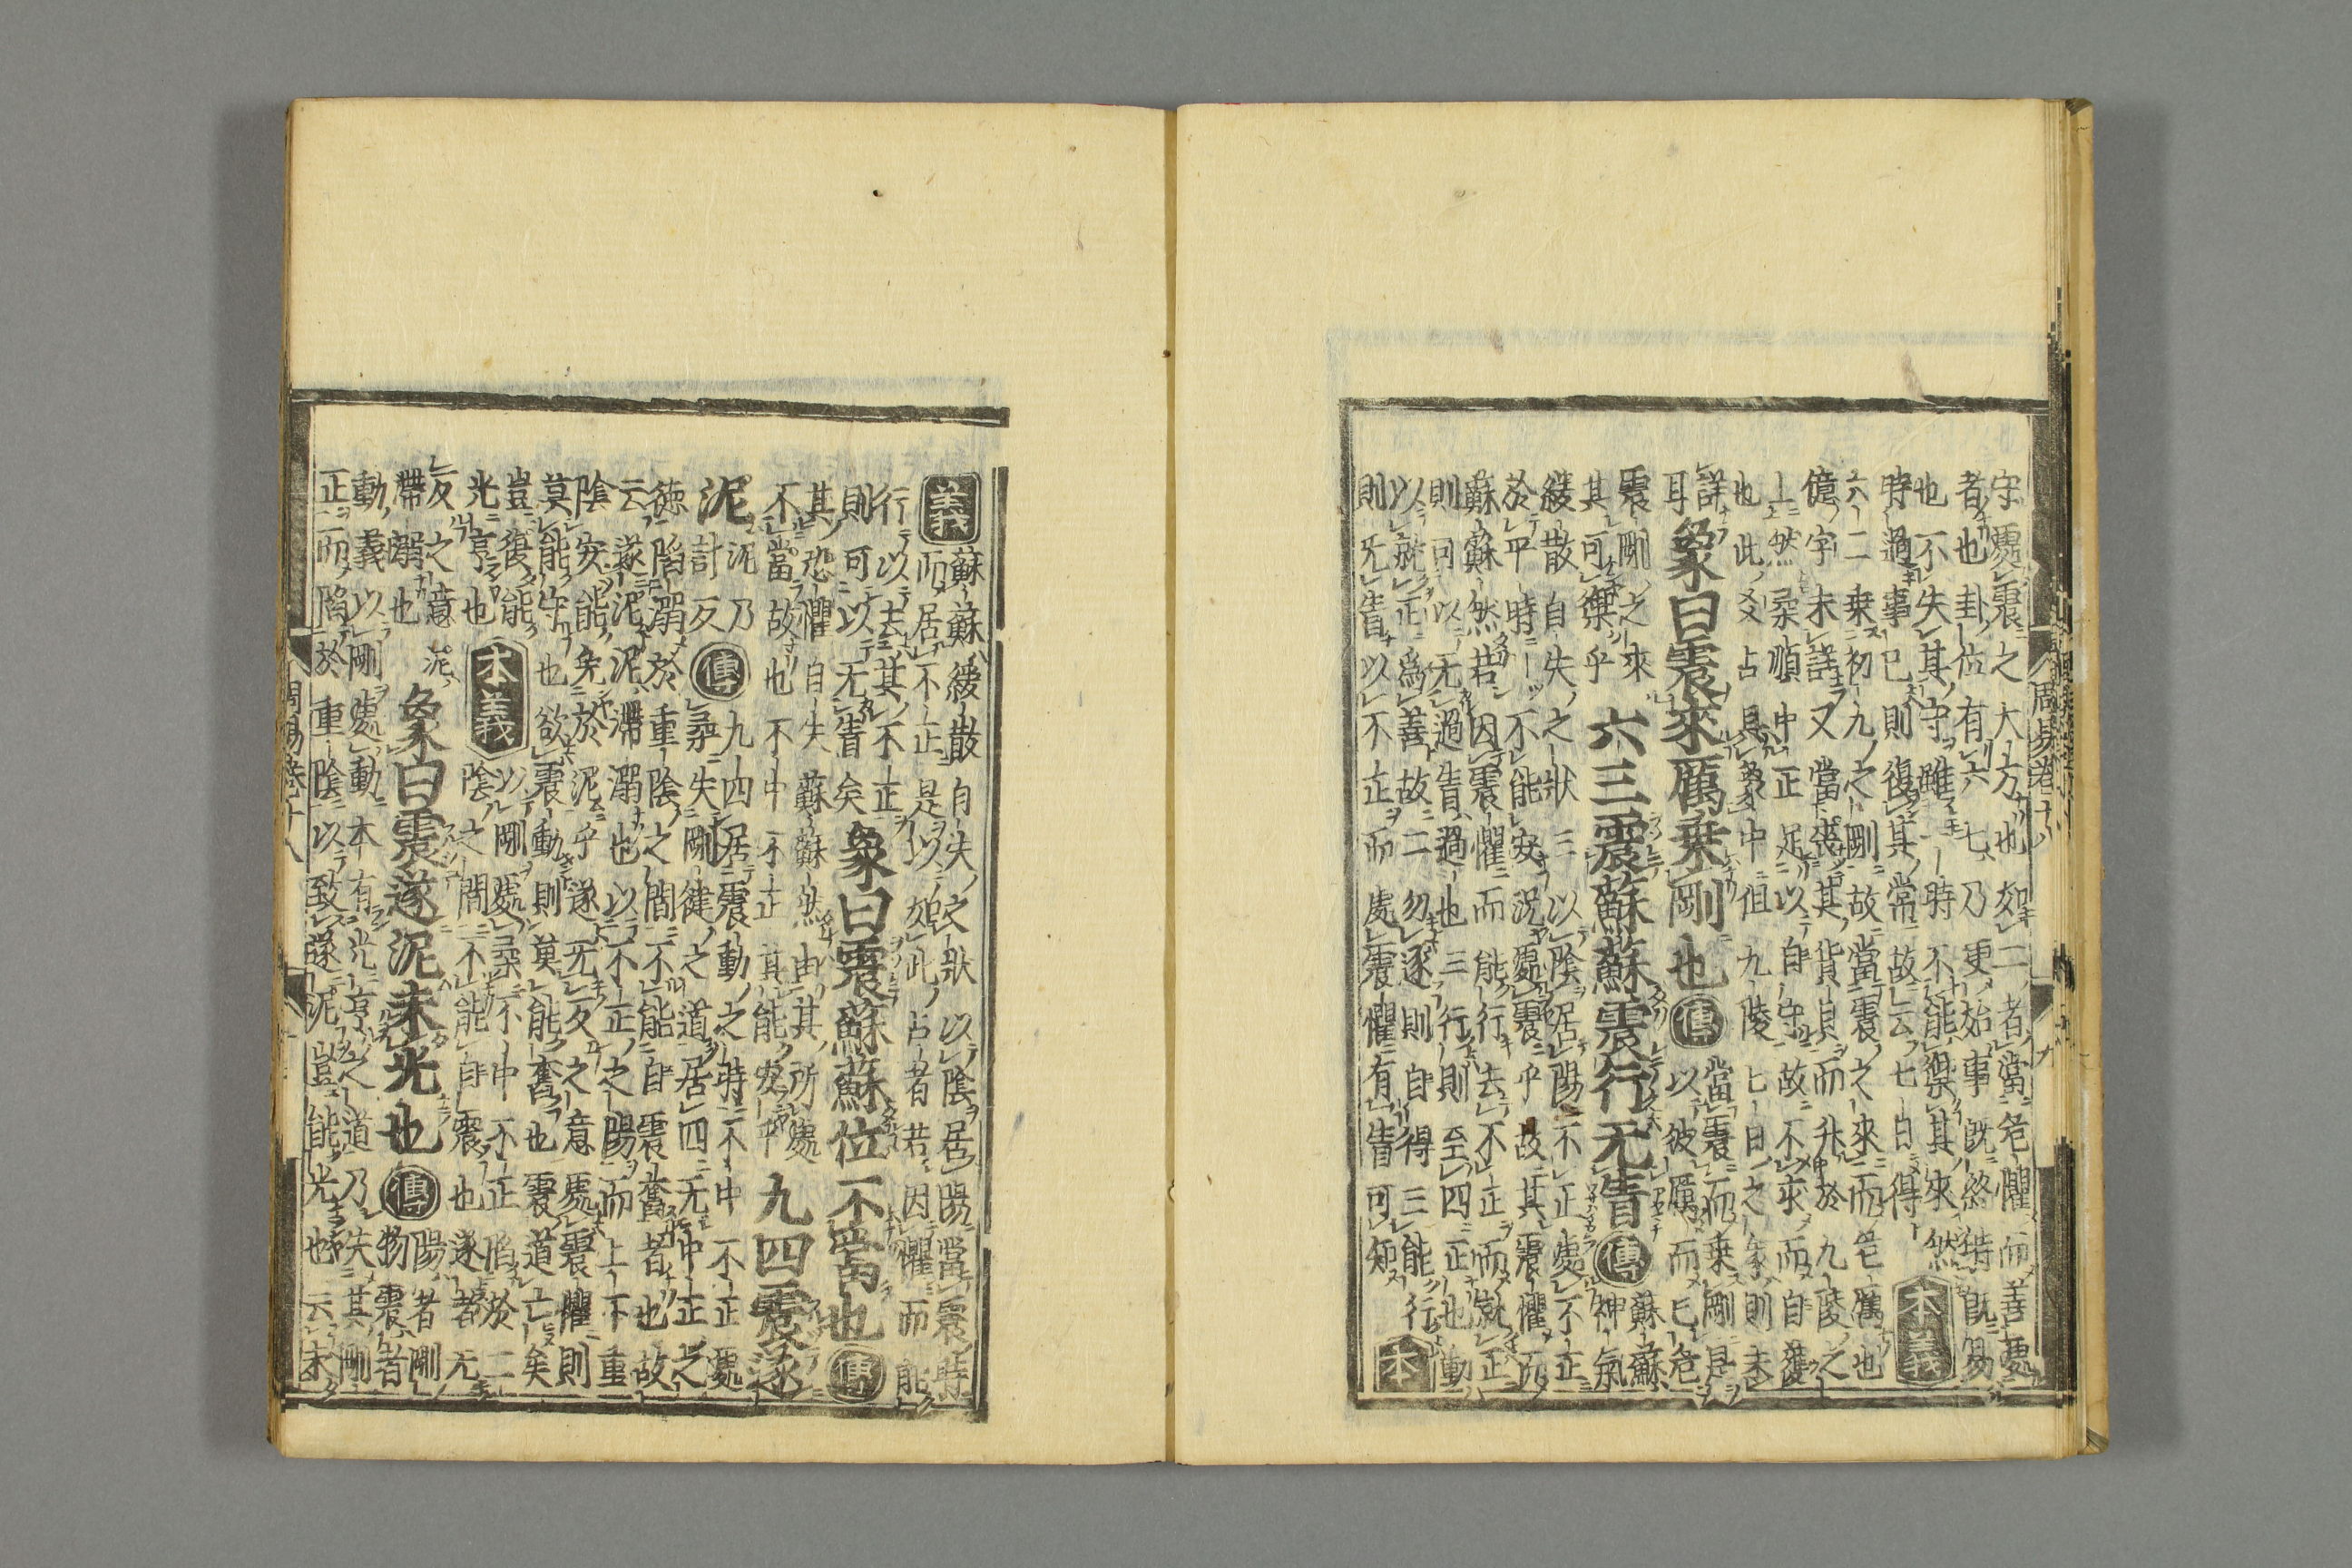 守處震之大方也如二者當危懼而善處
者也卦位有六七乃更始事既終時既易
也不失其守雖一時不能禦其來然
時過事已則復其常故云七日得
本義
六二乘初九之剛故當震之來而危厲也
億字未詳又當喪其貨貝而升於九陵之
上然柔順中正足以自守故不求而自獲
也此爻占具象中但九陵七日之象則未
詳
耳
象曰震來厲乘剛也
傳
當震而乘剛是
以彼厲而己危
震剛之來
其可禦乎
六三震蘇蘇震行无眚
傳
蘇蘇
神氣
緩散自失之狀三以陰居陽不正處不正
於平時且不能安況處震乎故其震懼而
蘇蘇然若因震懼而能行去不正而就正
則可以无過眚過也三行則至四正也動
以就正爲善故二勿逐則自得三能行
則无眚以不正而處震懼有眚可知
本
義
蘇蘇緩散自失之狀以陰居陽當震時
而居不正是以如此占者若因懼而能
行以去其不正
則可以无眚矣
象曰震蘇蘇位不當也
傳
其恐懼自失蘇蘇然由其所處
不當故也不中不正其能安乎
九四震遂
泥
泥乃
計反
傳
九四居震動之時不中不正處
柔失剛健之道居四无中正之
德陷溺於重陰之間不能自震奮者也故
云遂泥泥滯溺也以不正之陽而上下重
陰安能免於泥乎遂无反之意處震懼則
莫能守也欲震動則莫能奮也震道亡矣
豈復能
光亨也
本義
以剛處柔不中不正陷於二
陰之間不能自震也遂者无
反之意泥
滯溺也
象曰震遂泥未光也
傳
陽者剛
物震者
動義以剛處動本有光亨之道乃失其剛
正而陷於重陰以致遂泥豈能光也云未
周易卷十八